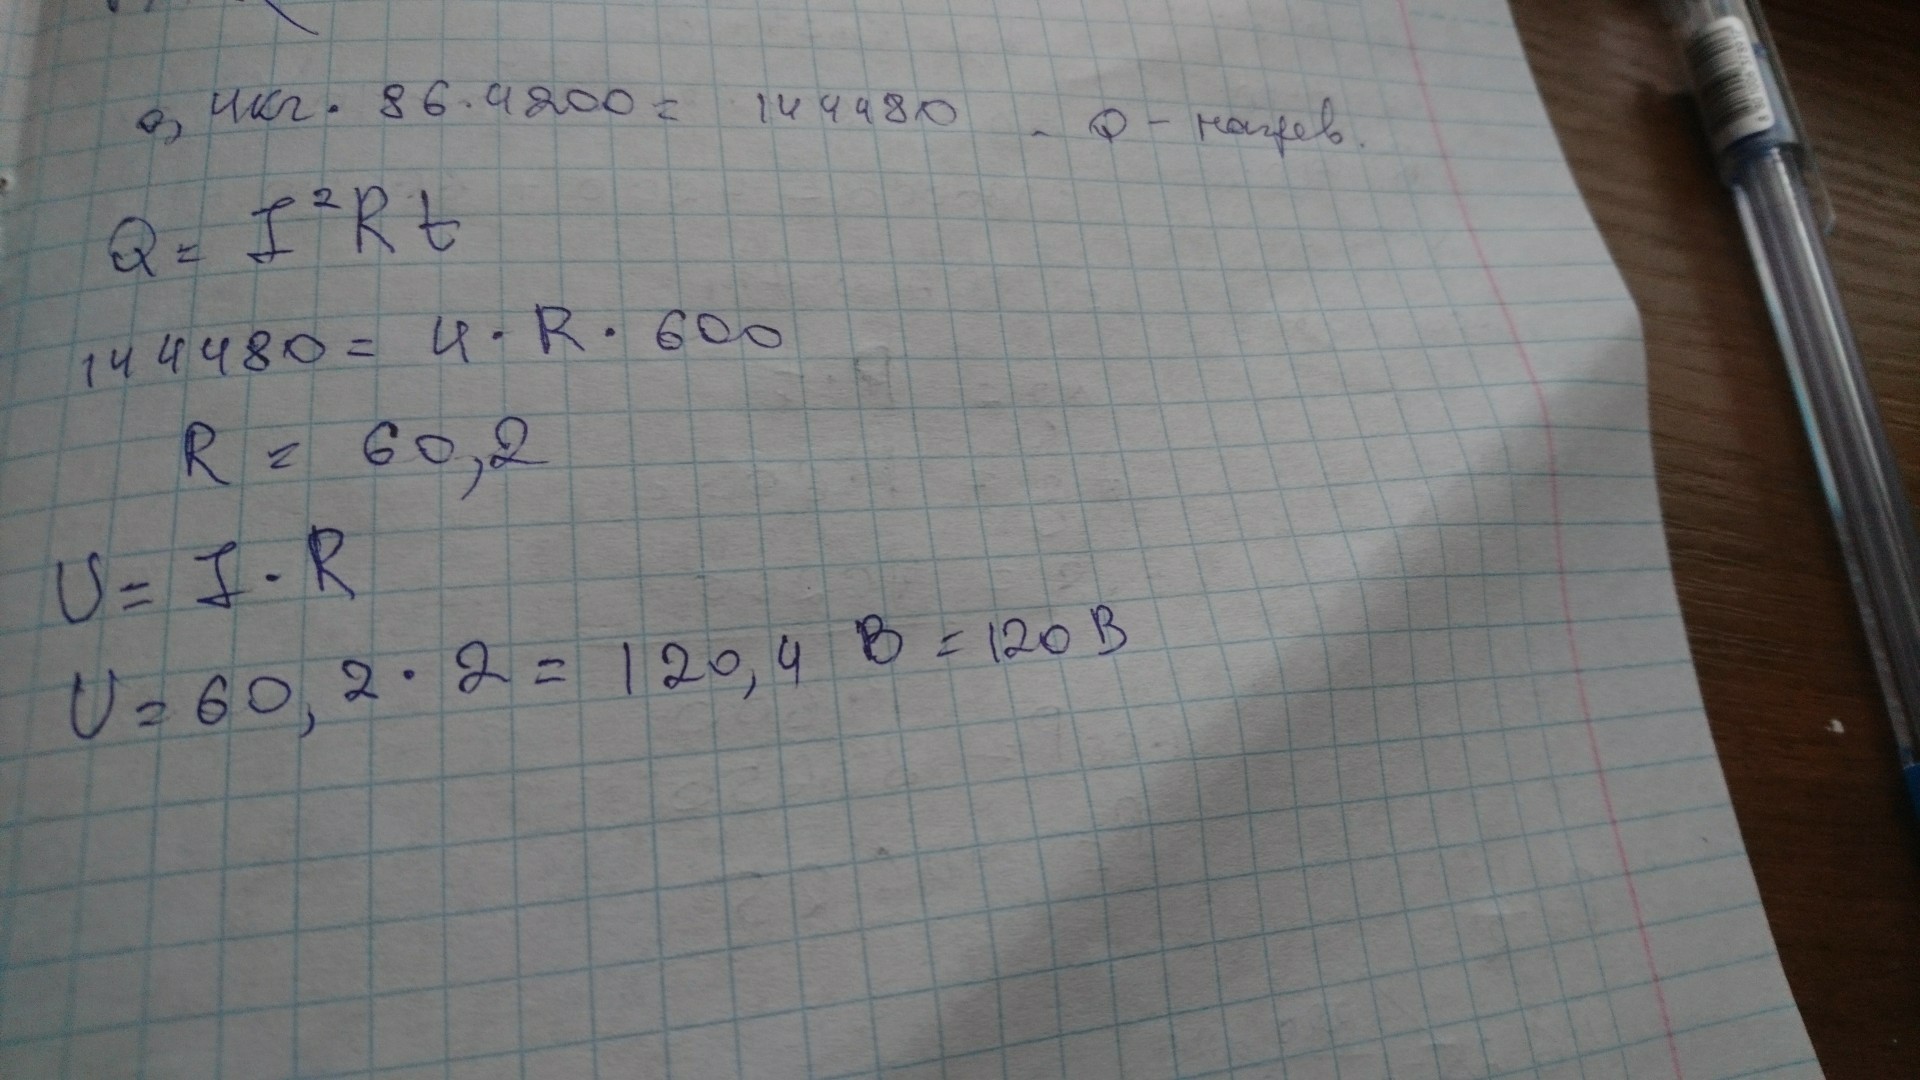 0,4кг. 86.4200= 144480 - Q - нагрев.
Q = I²Rt
144480 = 4 · R · 600
R = 60,2
U = I · R
U = 60,2 · 2 = 120,4 В = 120 В